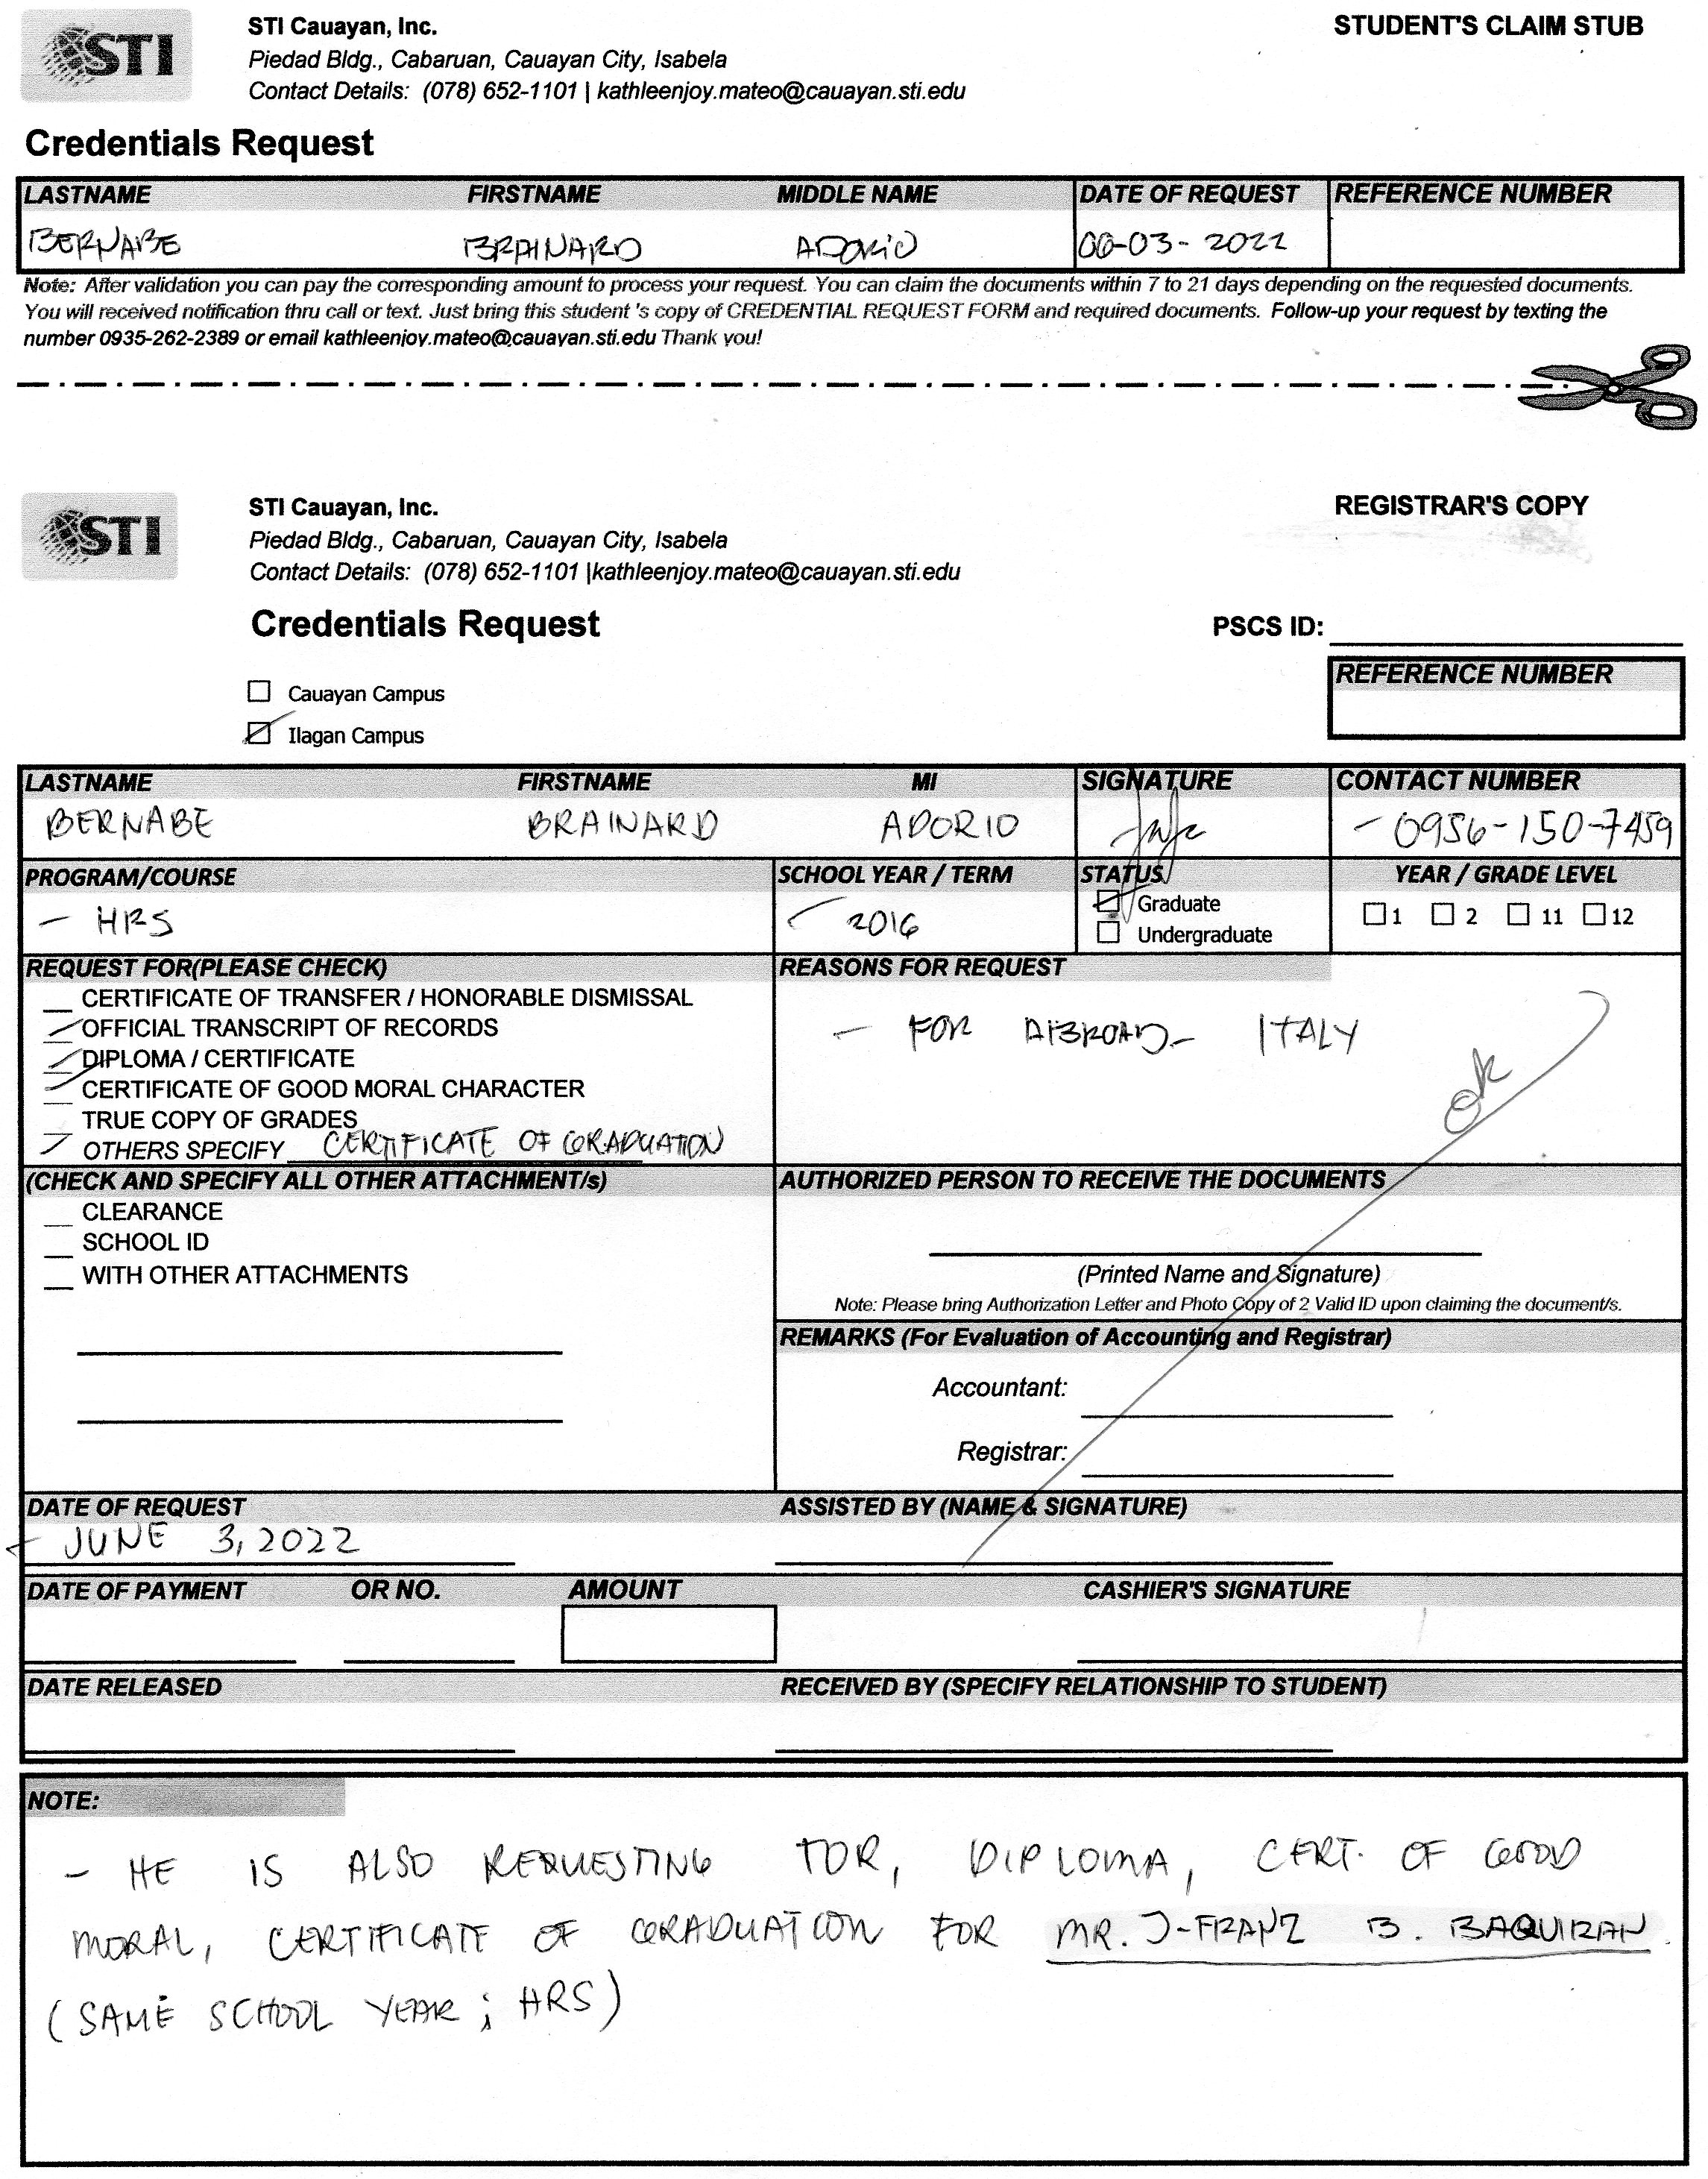 STI
STI Cauayan, Inc.
Piedad Bldg., Cabaruan, Cauayan City, Isabela
Contact Details: (078) 652-1101 | kathleenjoy.mateo@cauayan.sti.edu
STUDENT'S CLAIM STUB
Credentials Request
LASTNAME FIRSTNAME MIDDLE NAME DATE OF REQUEST REFERENCE NUMBER
BERNABE BRAINARD ADORIO 06-03-2022
Note: After validation you can pay the corresponding amount to process your request. You can claim the documents within 7 to 21 days depending on the requested documents.
You will received notification thru call or text. Just bring this student 's copy of CREDENTIAL REQUEST FORM and required documents. Follow-up your request by texting the
number 0935-262-2389 or email kathleenjoy.mateo@cauayan.sti.edu Thank you!
STI
STI Cauayan, Inc.
Piedad Bldg., Cabaruan, Cauayan City, Isabela
Contact Details: (078) 652-1101 |kathleenjoy.mateo@cauayan.sti.edu
REGISTRAR'S COPY
Credentials Request
PSCS ID:
REFERENCE NUMBER
Cauayan Campus
Ilagan Campus
LASTNAME FIRSTNAME MI SIGNATURE CONTACT NUMBER
BERNABE BRAINARD ADORIO - 0956-150-7459
PROGRAM/COURSE SCHOOL YEAR / TERM STATUS YEAR / GRADE LEVEL
- HRS 2016
Graduate
Undergraduate
1 2 11 12
REQUEST FOR(PLEASE CHECK)
CERTIFICATE OF TRANSFER / HONORABLE DISMISSAL
OFFICIAL TRANSCRIPT OF RECORDS
DIPLOMA / CERTIFICATE
CERTIFICATE OF GOOD MORAL CHARACTER
TRUE COPY OF GRADES
OTHERS SPECIFY CERTIFICATE OF GRADUATION
REASONS FOR REQUEST
- FOR ABROAD - ITALY
ok
(CHECK AND SPECIFY ALL OTHER ATTACHMENT/s)
CLEARANCE
SCHOOL ID
WITH OTHER ATTACHMENTS
AUTHORIZED PERSON TO RECEIVE THE DOCUMENTS
(Printed Name and Signature)
Note: Please bring Authorization Letter and Photo Copy of 2 Valid ID upon claiming the document/s.
REMARKS (For Evaluation of Accounting and Registrar)
Accountant:
Registrar:
DATE OF REQUEST ASSISTED BY (NAME & SIGNATURE)
- JUNE 3, 2022
DATE OF PAYMENT OR NO. AMOUNT CASHIER'S SIGNATURE
DATE RELEASED RECEIVED BY (SPECIFY RELATIONSHIP TO STUDENT)
NOTE:
- HE IS ALSO REQUESTING TOR, DIPLOMA, CERT. OF GOOD
MORAL, CERTIFICATE OF GRADUATION FOR MR. J-FRANZ B. BAQUIRAN
(SAME SCHOOL YEAR ; HRS)